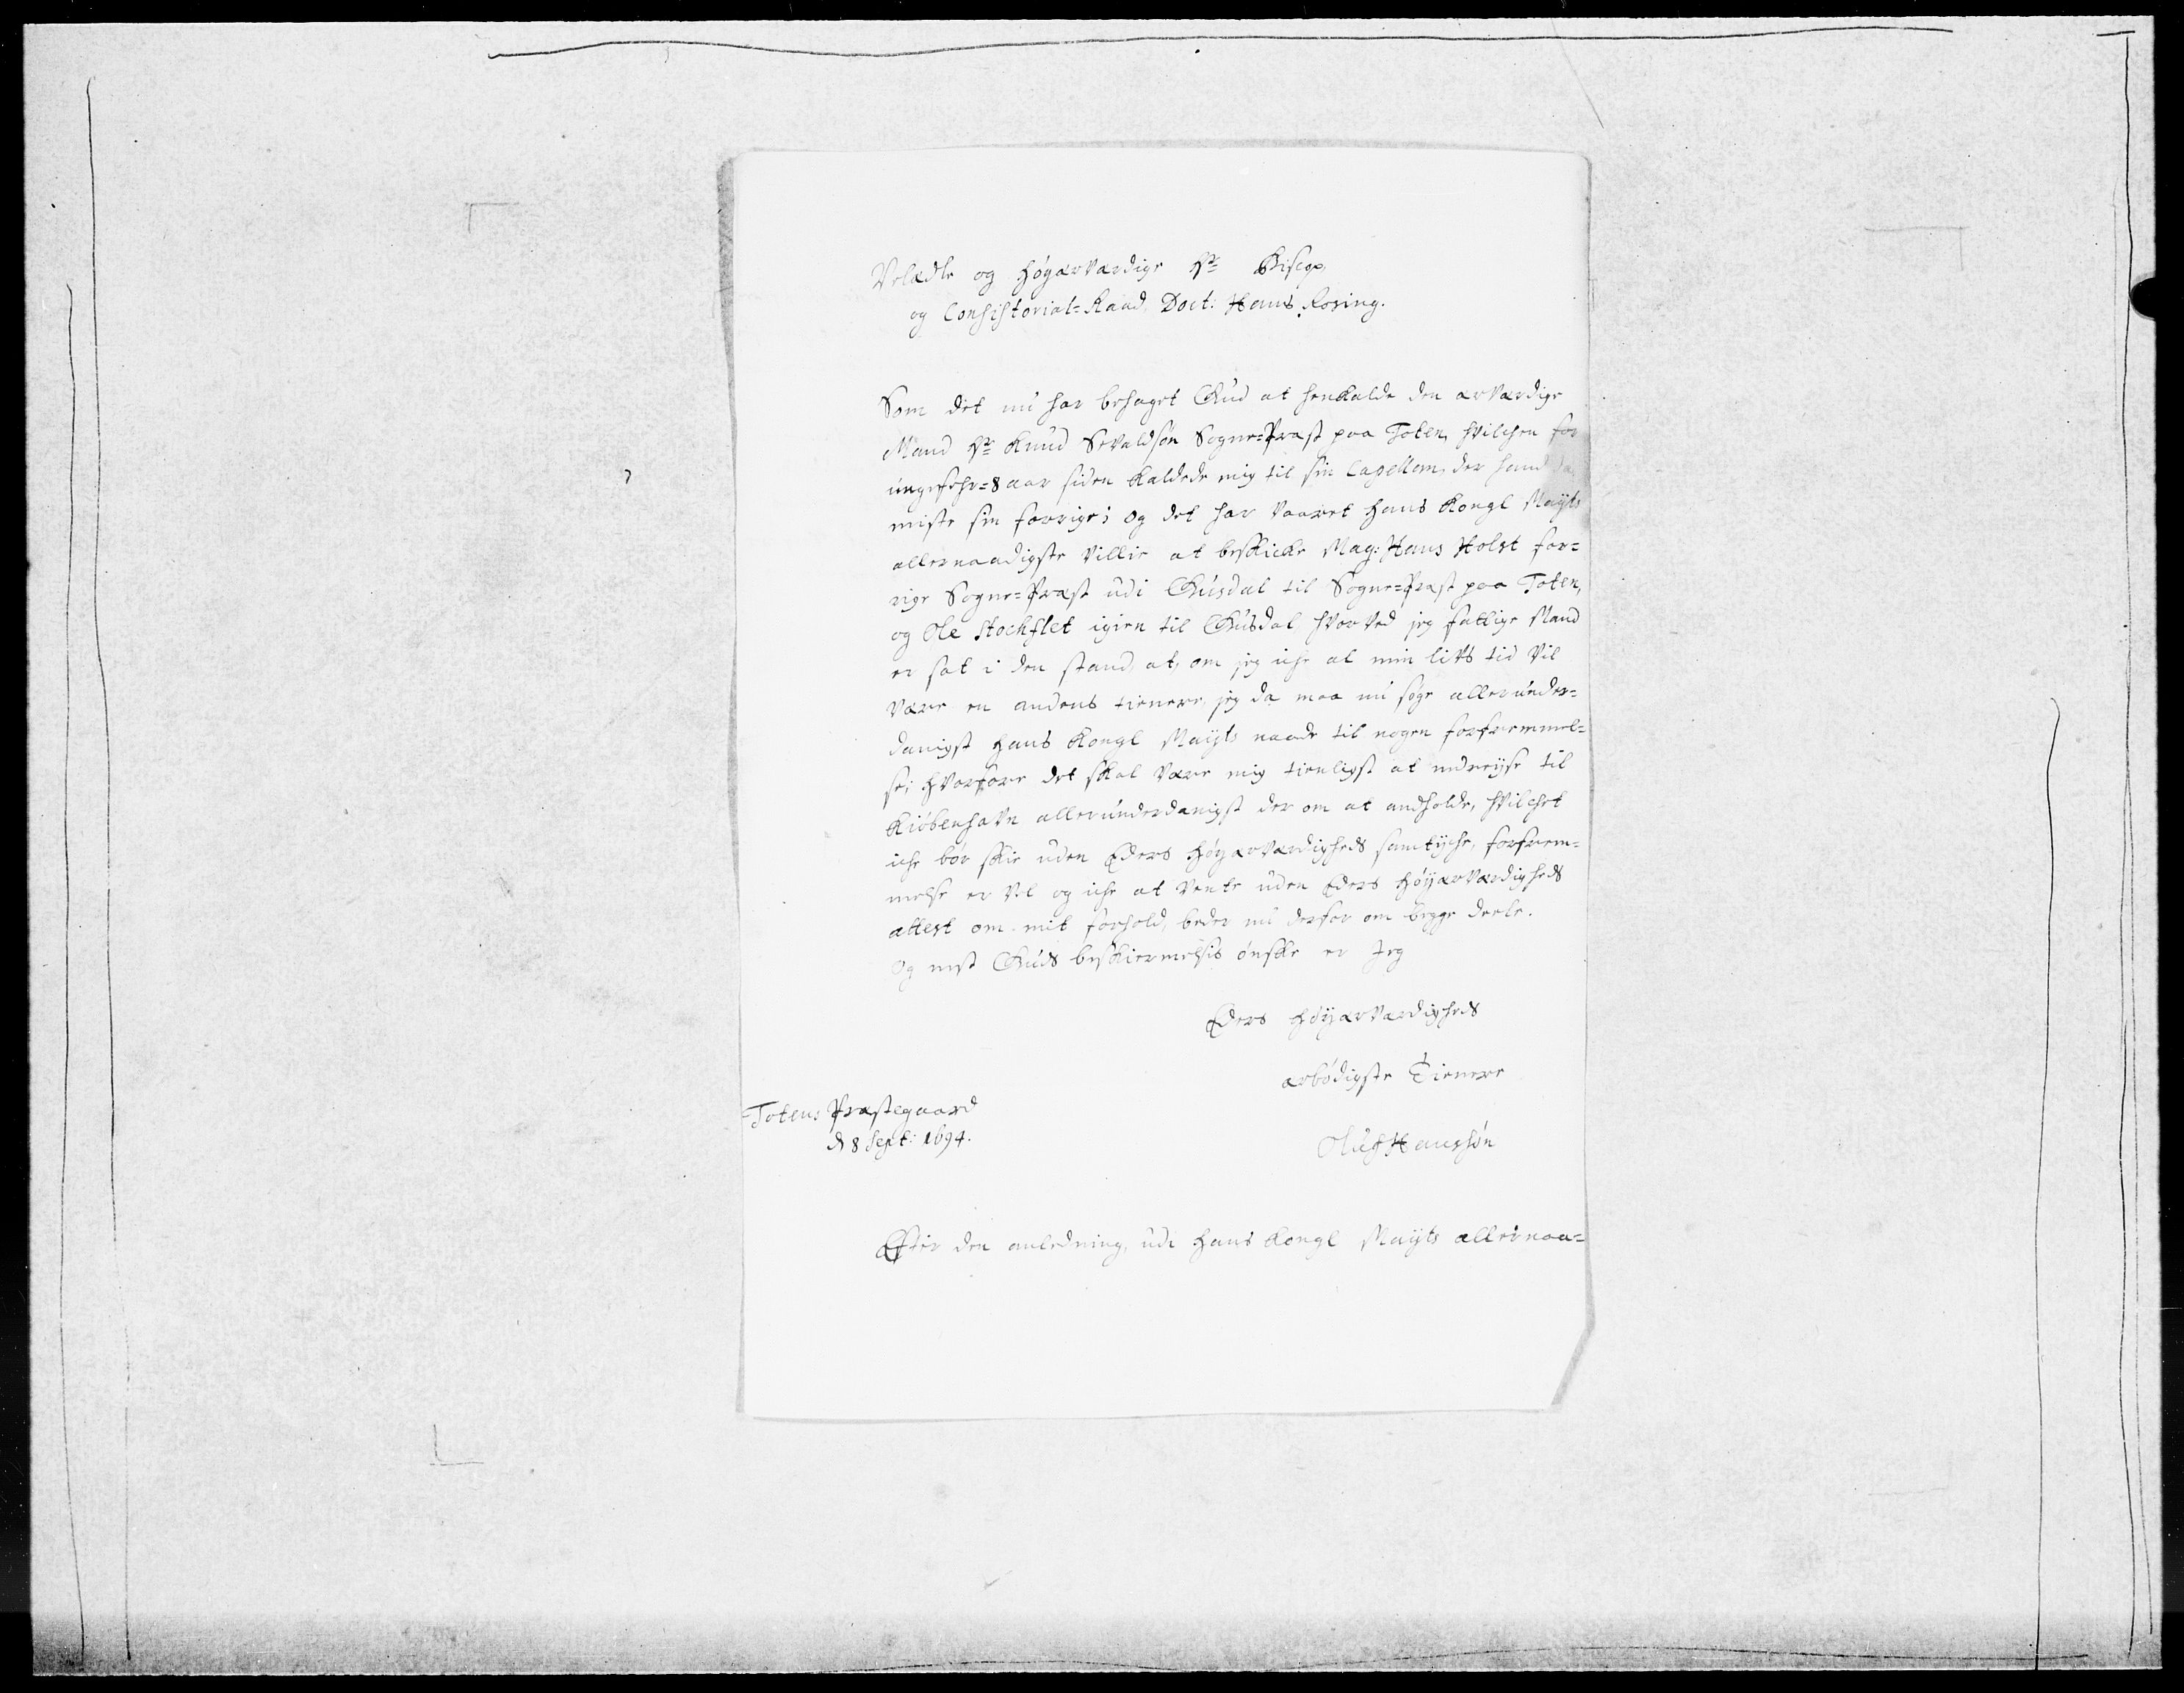 Velædle og høyærværdige Hr Biscop,
og Consistorial-Raad Doct: Hans Rosing.
Som det nu har behaget Gud at henkalde den ærværdige
Mand Hr Knud Sevaldsøn Sogne-Præst paa Toten, hvilchen for
ungefehr=8 aar siden kaldede mig til sin Capellan, der hand da
miste sin forrige; og det har været hans Kongl Mayts
allernaadigste villie at beskicke Mag: Hans Holst for=
rige Sogne=Præst udi Gusdal til Sogne=Præst paa Toten,
og Ole Stochflet igien til Gusdal, hvorved jeg fattige Mand
er sat i den stand, at, om jeg iche al min livs tid vil
være en andens tienere, jeg da maa nu søge allerunder=
danigst hans Kongl Mayts naade til nogen forfremmel=
se; hvorfore det skal være mig tienligst at nedreyse til
Kiøbenhavn allerunderdanigst der om at andholde, hvilchet
iche bør skie uden Eders Høyærværdigheds samtyche, forfrem=
melse er vel og iche at vente uden Eders Høyærværdigheds
attest om mit forhold, beder nu derfor om begge deele.
Og nest Guds beskiermelsis ønske er Jeg
Eders Høyærværdigheds
ærbødigste Tienere
Totens Præstegaard
d 8 Sept: 1694.
Oluf Hanssøn
Efter den anledning, udi hans Kongl Mayts allernaa=